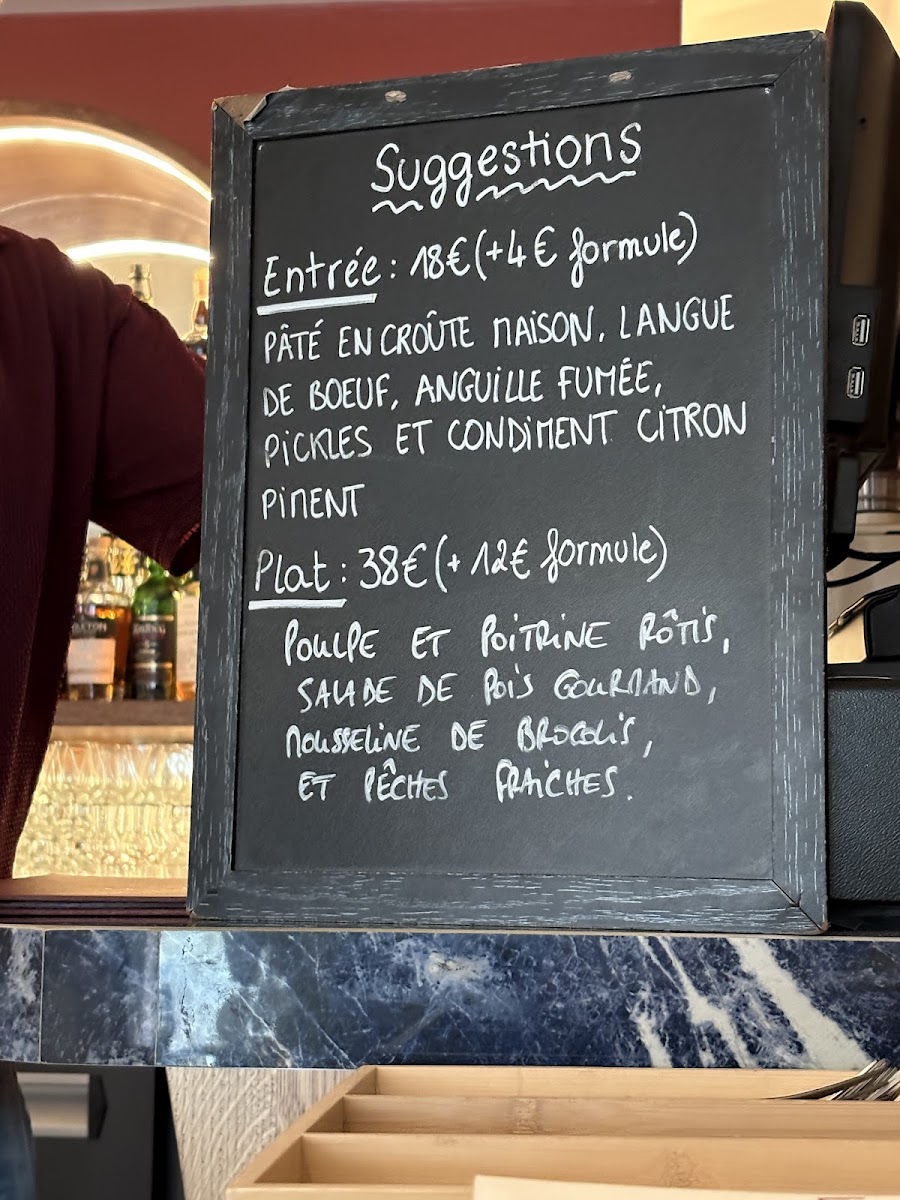 Suggestions
Entrée : 18€ (+4€ formule)
PÂTÉ EN CROÛTE MAISON, LANGUE
DE BOEUF, ANGUILLE FUMÉE,
PICKLES ET CONDIMENT CITRON
PIMENT
Plat : 38€ (+ 12€ formule)
POULPE ET POITRINE RÔTIS,
SALADE DE POIS GOURMAND,
MOUSSELINE DE BROCOLIS,
ET PÊCHES FRAICHES.